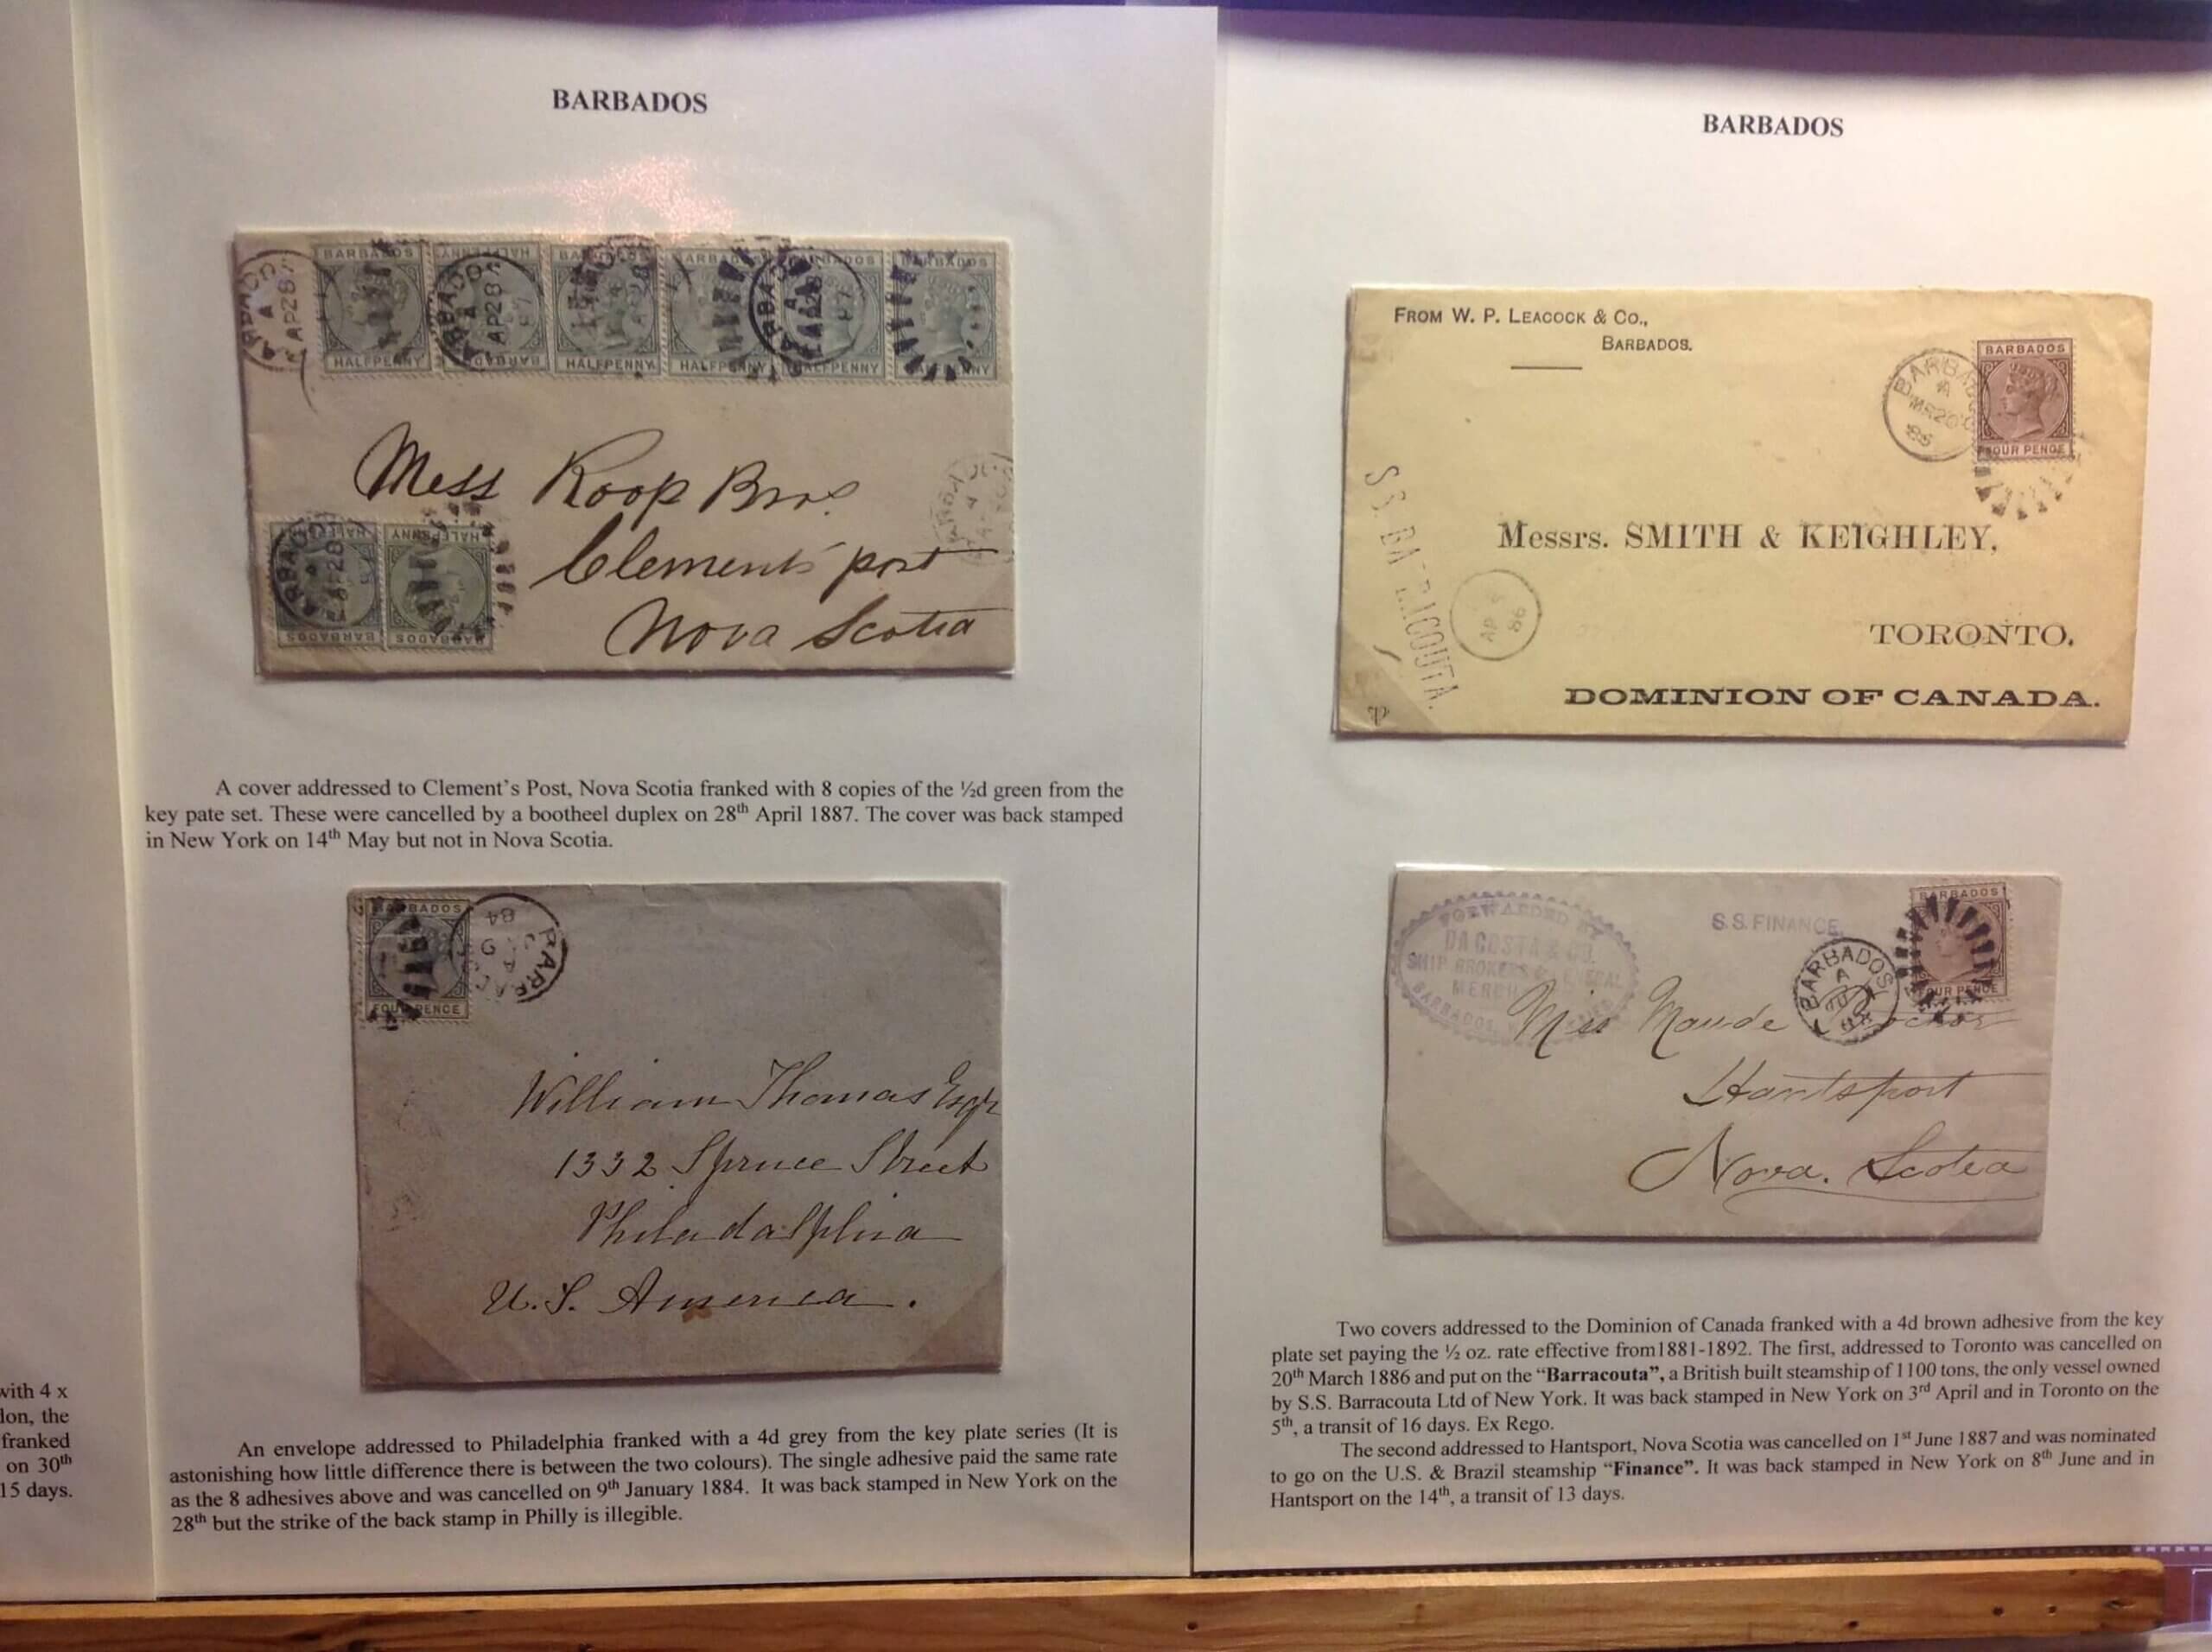 BARBADOS
BARBADOS HALFPENNY BARBADOS BARBADOS BARBADOS BARBADOS
HALFPENNY BARBADOS HALFPENNY HALFPENNY HALFPENNY
AP 28
AP 28
87
Mess Roop Bros.
Clements port
Nova Scotia
HALFPENNY
BARBADOS BARBADOS
A cover addressed to Clement's Post, Nova Scotia franked with 8 copies of the ½d green from the
key pate set. These were cancelled by a bootheel duplex on 28th April 1887. The cover was back stamped
in New York on 14th May but not in Nova Scotia.
BARBADOS
FOUR PENCE
84
William Thomas Esqr
1332 Spruce Street
Philadalphia
U.S. America.
An envelope addressed to Philadelphia franked with a 4d grey from the key plate series (It is
astonishing how little difference there is between the two colours). The single adhesive paid the same rate
as the 8 adhesives above and was cancelled on 9th January 1884. It was back stamped in New York on the
28th but the strike of the back stamp in Philly is illegible.
with 4 x
don, the
franked
on 30th
15 days.
BARBADOS
FROM W. P. LEACOCK & CO.,
BARBADOS.
BARBADOS
FOUR PENCE
BARBADOS
A
MR 20
86
S.S. BARRACOUTA.
Messrs. SMITH & KEIGHLEY,
AP 5
86
TORONTO.
DOMINION OF CANADA.
FORWARDED BY
DA COSTA & CO.
SHIP BROKERS & GENERAL
MERCH
BARBADOS,
S.S. FINANCE
BARBADOS
FOUR PENCE
BARBADOS
A
Miss Maude
Hantsport
Nova. Scotia
Two covers addressed to the Dominion of Canada franked with a 4d brown adhesive from the key
plate set paying the ½ oz. rate effective from1881-1892. The first, addressed to Toronto was cancelled on
20th March 1886 and put on the “Barracouta”, a British built steamship of 1100 tons, the only vessel owned
by S.S. Barracouta Ltd of New York. It was back stamped in New York on 3rd April and in Toronto on the
5th, a transit of 16 days. Ex Rego.
The second addressed to Hantsport, Nova Scotia was cancelled on 1st June 1887 and was nominated
to go on the U.S. & Brazil steamship “Finance”. It was back stamped in New York on 8th June and in
Hantsport on the 14th, a transit of 13 days.